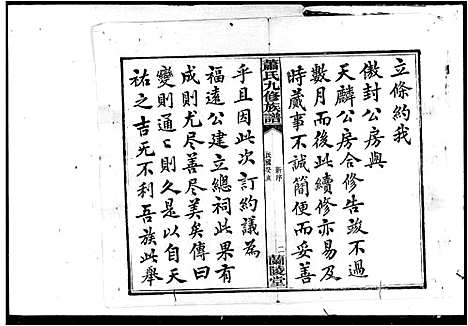 立條約我
傲封公房與
天麟公房合修告竣不過
數月而後此續修亦易及
時蕆事不誠簡便而妥善
蕭氏九修族譜
民國癸亥
新序
二
蘭陵堂
乎且因此次訂約議為
福遠公建立總祠此果有
成則尤尽善尽美矣傳曰
變則通通則久是以自天
祐之吉无不利吾族此舉